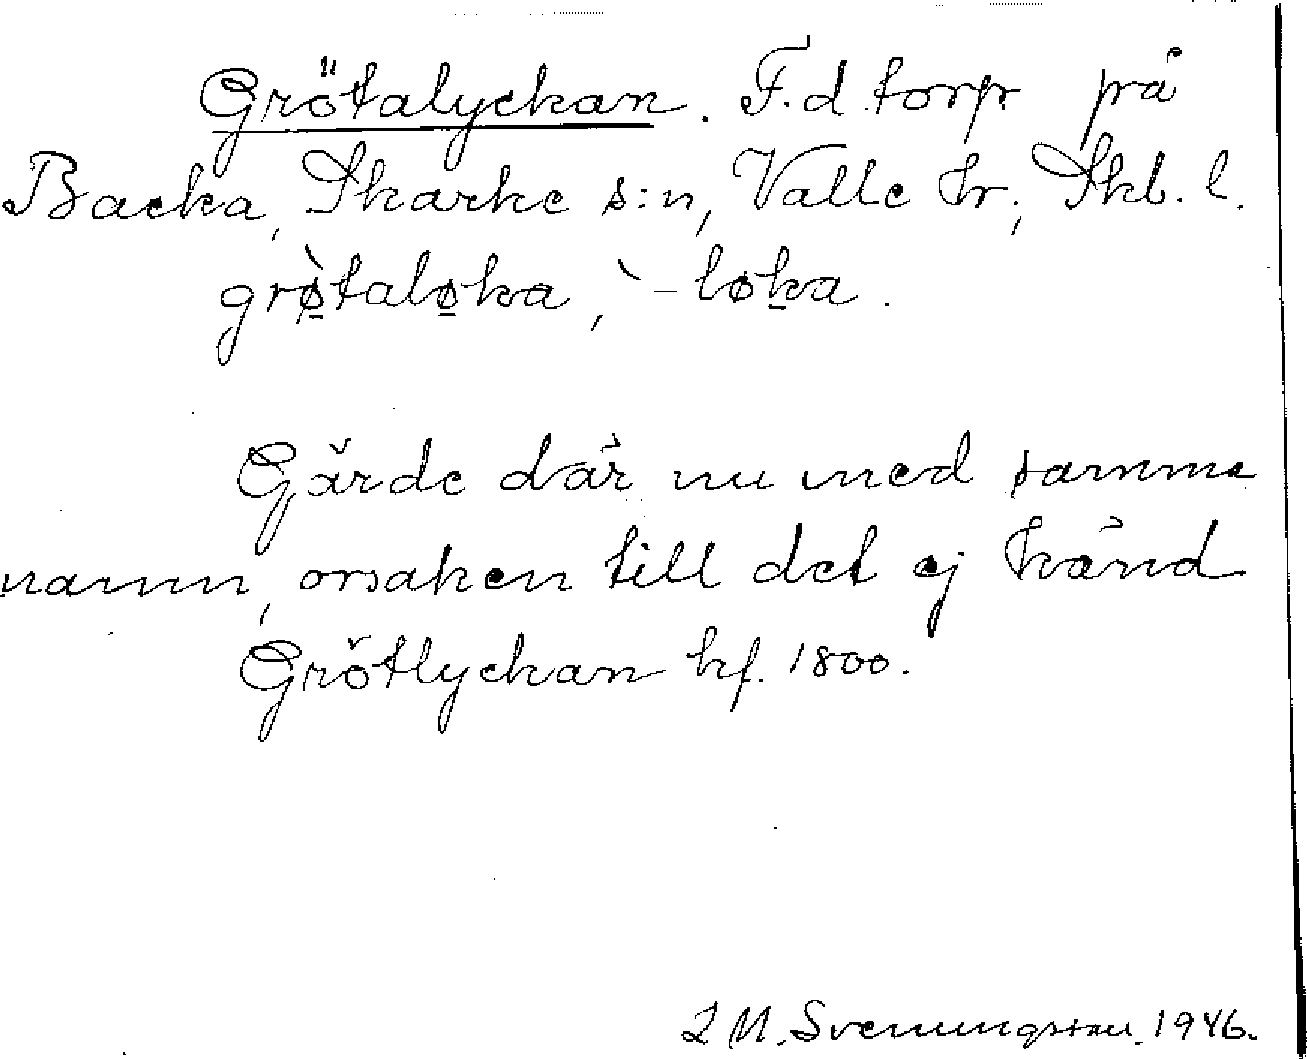 Grötalyckan. F.d. torp på
Backa, Skarke s:n, Valle hr; Skb. l.
grø̀taløka, `-løka.
Gärde där nu med samma
namn, orsaken till det ej känd
Grötlyckan hf. 1800.
Svenungsson. 1946.